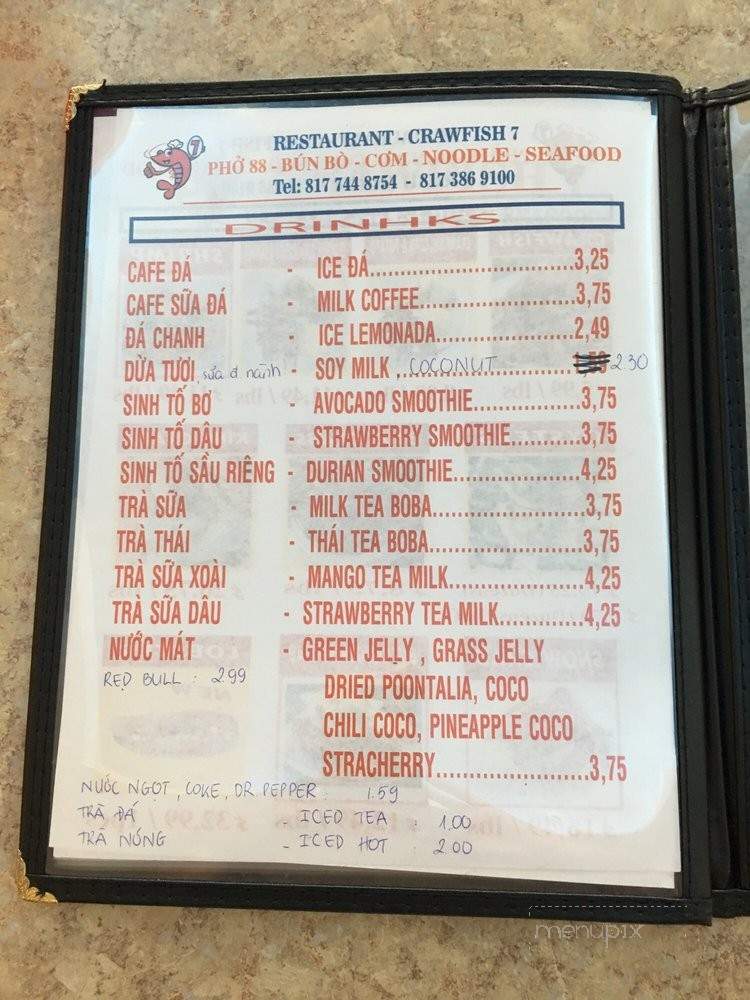 7
RESTAURANT - CRAWFISH 7
PHỞ 88 - BÚN BÒ - CƠM - NOODLE - SEAFOOD
Tel: 817 744 8754 - 817 386 9100
DRINHKS
CAFE ĐÁ - ICE ĐÁ...........................3,25
CAFE SỮA ĐÁ - MILK COFFEE...................3,75
ĐÁ CHANH - ICE LEMONADA.................2,49
DỪA TƯƠI, sữa đ nành - SOY MILK ,...COCONUT............ 2.30
SINH TỐ BƠ - AVOCADO SMOOTHIE.............3,75
SINH TỐ DÂU - STRAWBERRY SMOOTHIE.........3,75
SINH TỐ SẦU RIÊNG - DURIAN SMOOTHIE...............4,25
TRÀ SỮA - MILK TEA BOBA...................3,75
TRÀ THÁI - THÁI TEA BOBA...................3,75
TRÀ SỮA XOÀI - MANGO TEA MILK................4,25
TRÀ SỮA DÂU - STRAWBERRY TEA MILK..........4,25
NƯỚC MÁT - GREEN JELLY , GRASS JELLY
RED BULL : 2.99
DRIED POONTALIA, COCO
CHILI COCO, PINEAPPLE COCO
STRACHERRY....................3,75
NƯỚC NGỌT, COKE, DR PEPPER : 1.59
TRÀ ĐÁ - ICED TEA : 1.00
TRÀ NÓNG - ICED HOT : 2.00
menupix